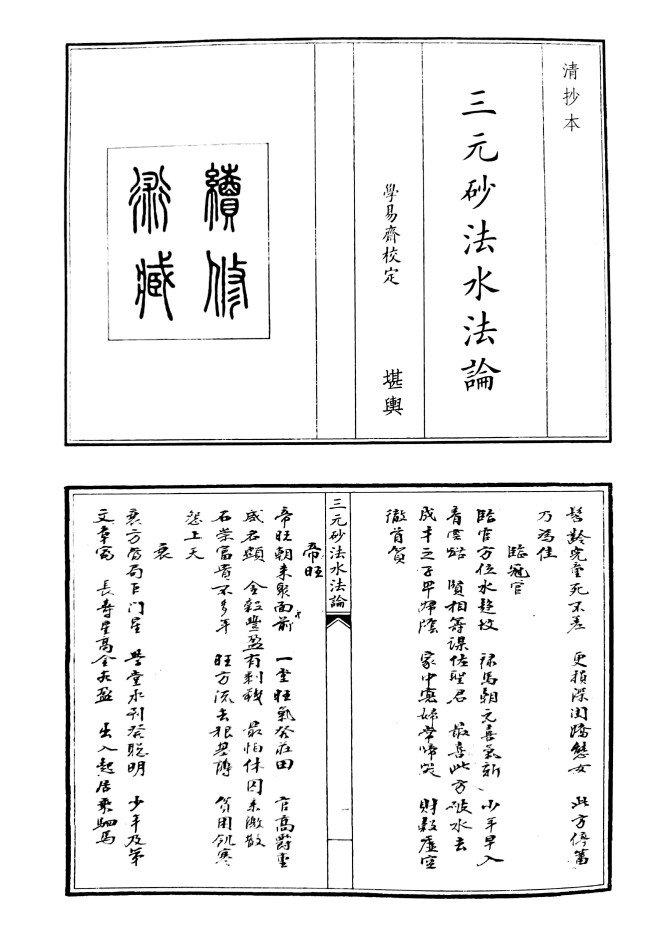 清抄本
三元砂法水法論
學易齋校定 堪輿
續修
術藏
髫齡兒童死不差 更損深閨嬌態女 此方停蓄
乃為佳
臨冠官
臨官方位水 祿馬朝元喜氣新 少年早入
青雲路 賢相籌謀佐聖君 最喜此方破水去
成才之子早歸陰 家中寡婦常啼哭 財穀虛空
徹骨貧
三元砂法水法論
帝旺
帝旺朝來聚面前 一堂旺氣發莊田 官高爵重
威名顯 金穀豐盈有剩錢 最怕休囚來激散
石崇富貴不多年 旺方流去根基薄 貧困飢寒
怨上天
衰
衰方管局巨門星 學堂水到發聰明 少年及第
文章富 長壽星高金谷盈 出入起居乘駟馬